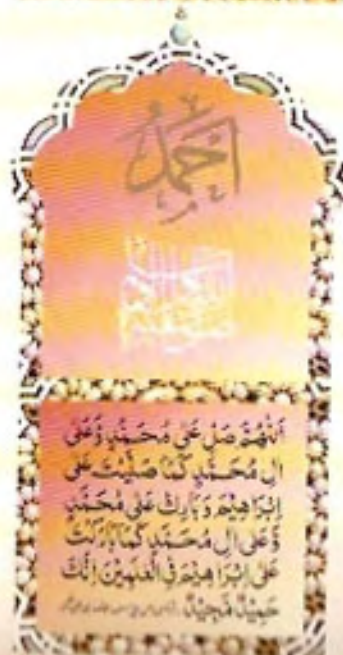 احمد
اَللّٰهُمَّ صَلِّ عَلٰى مُحَمَّدٍ وَّعَلٰى
اٰلِ مُحَمَّدٍ كَمَا صَلَّيْتَ عَلٰى
اِبْرَاهِيْمَ وَبَارِكْ عَلٰى مُحَمَّدٍ
وَّعَلٰى اٰلِ مُحَمَّدٍ كَمَا بَارَكْتَ
عَلٰى اِبْرَاهِيْمَ فِى الْعٰلَمِيْنَ اِنَّكَ
حَمِيْدٌ مَّجِيْدٌ